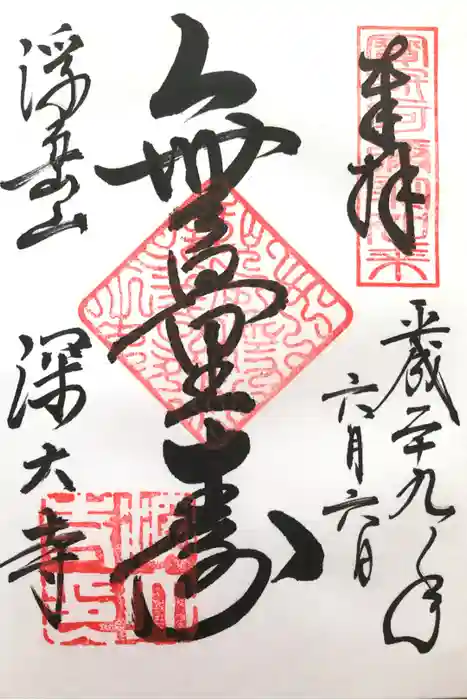 奉拝
平成二十九年
六月六日
無量壽
浮岳山
深大寺